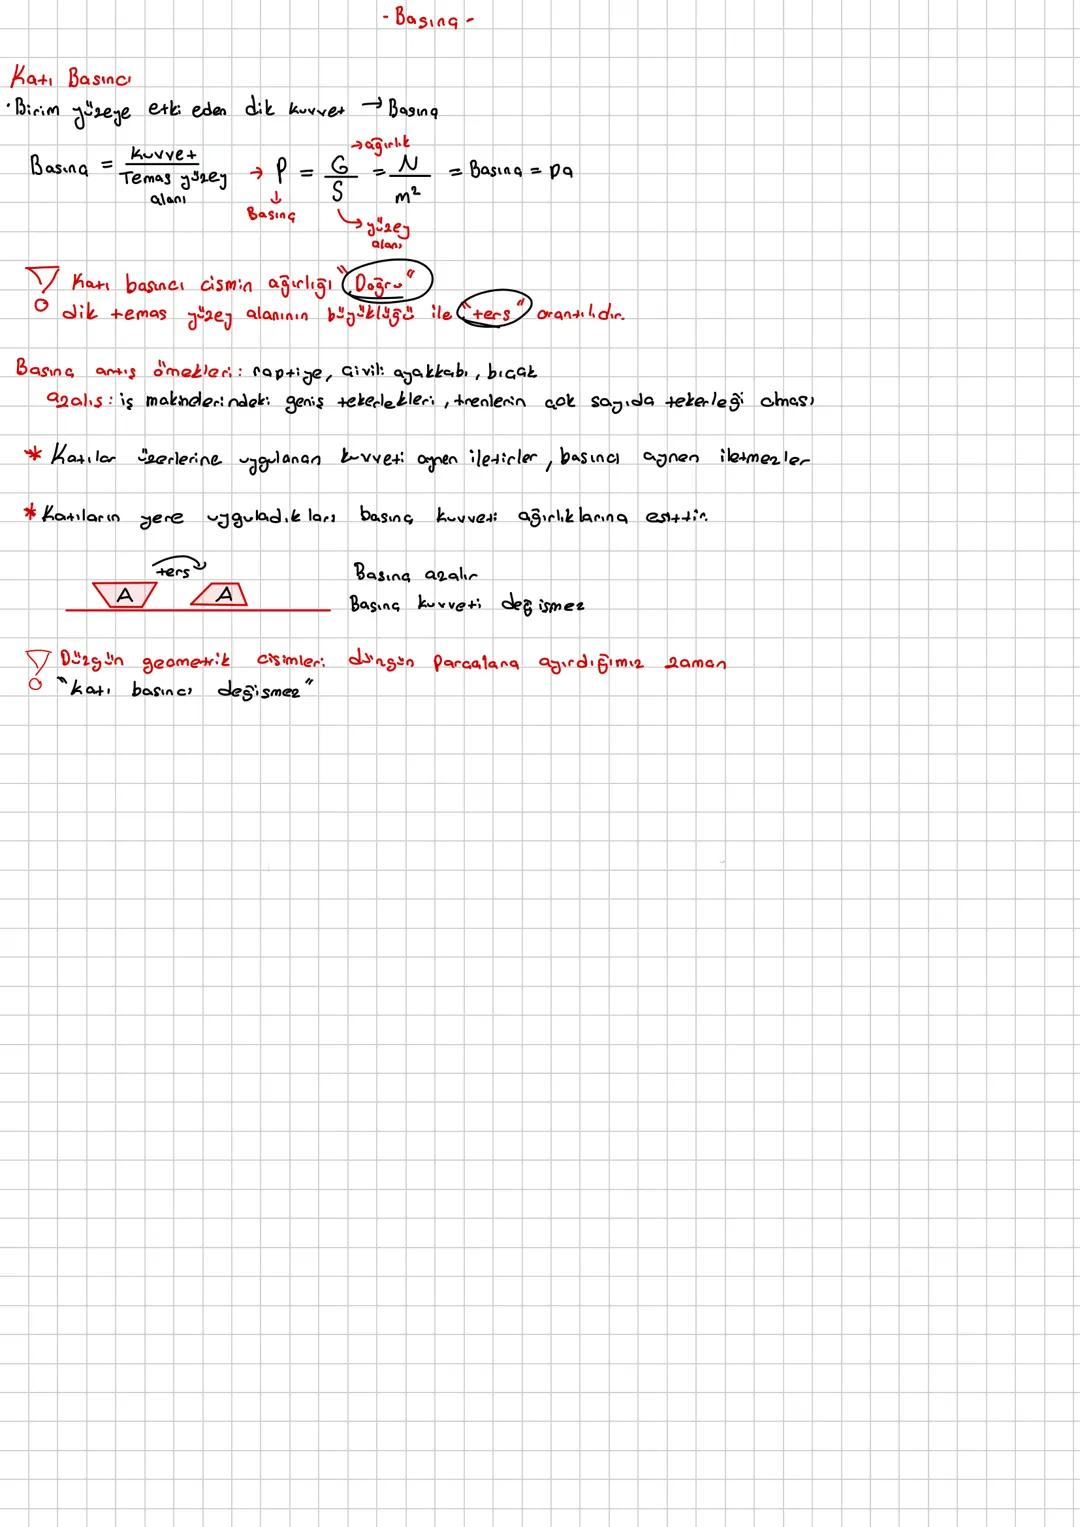 - Basınç -
Katı Basıncı
• Birim yüzeye etki eden dik kuvvet → Basınç
Basınç = Kuvvet / Temas yüzey alanı → P = G / S = N / m² = Basınç = Pa
→ ağırlık
↓ Basınç
→ yüzey alanı
! Katı basıncı cismin ağırlığı "Doğru"
dik temas yüzey alanının büyüklüğü ile "ters" orantılıdır.
Basınç artış örnekleri: raptiye, çivili ayakkabı, bıçak
azalış: iş makinelerindeki geniş tekerlekleri, trenlerin çok sayıda tekerleği olması
* Katılar üzerlerine uygulanan kuvveti aynen iletirler, basıncı aynen iletmezler
* Katıların yere uyguladıkları basınç kuvveti ağırlıklarına eşittir.
ters
A A
Basınç azalır
Basınç kuvveti değişmez
! Düzgün geometrik cisimleri düzgün parçalara ayırdığımız zaman
"katı basıncı değişmez"